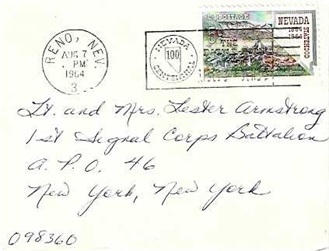 RENO, NEV.
AUG 7
PM
1964
3
NEVADA
100
CENTENNIAL
U.S. POSTAGE
NEVADA
1864
1964
Lt. and Mrs. Lester Armstrong
1st Signal Corps Battalion
A. P. O. 46
New York, New York
098360